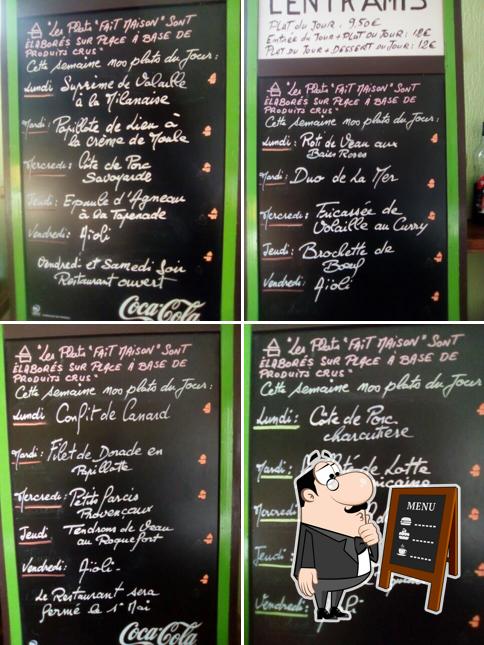 "Les Plats "FAIT MAISON" SONT
ÉLABORÉS SUR PLACE À BASE DE
PRODUITS CRUS"
Cette semaine nos plats du Jour:
Lundi Suprème de Volaille
à la Milanaise
Mardi: Papillote de Lieu à
la crème de Moule
Mercredi: Côte de Porc
Savoyarde
Jeudi: Epaule d'Agneau
à la Tapenade
Vendredi: Aïoli
Vendredi et Samedi Soir
Restaurant ouvert
Coca-Cola
L'ENTRAMIS
PLAT DU JOUR: 9,50€
Entrée du Jour + PLAT DU JOUR: 12€
PLAT DU JOUR + DESSERT DU JOUR: 12€
"Les Plats "FAIT MAISON" SONT
ÉLABORÉS SUR PLACE À BASE DE
PRODUITS CRUS"
Cette semaine nos plats du Jour:
Lundi: Roti de Veau aux
Baies Roses
Mardi: Duo de La Mer
Mercredi: Fricassée de
Volaille au Curry
Jeudi: Brochette de
Boeuf
Vendredi: Aïoli
"Les Plats "FAIT MAISON" SONT
ÉLABORÉS SUR PLACE À BASE DE
PRODUITS CRUS"
Cette semaine nos plats du Jour:
Lundi Confit de Canard
Mardi: Filet de Dorade en
Papillotte
Mercredi: Petits Farcis
Provençaux
Jeudi Tendrons de Veau
au Roquefort
Vendredi: Aïoli-
Le Restaurant sera
fermé le 1er Mai
Coca-Cola
"Les Plats "FAIT MAISON" SONT
ÉLABORÉS SUR PLACE À BASE DE
PRODUITS CRUS"
Cette semaine nos plats du Jour
Lundi: Côte de Porc
charcutière
Mardi: de Lotte
Mercredi
Jeudi:
Vendredi:
MENU